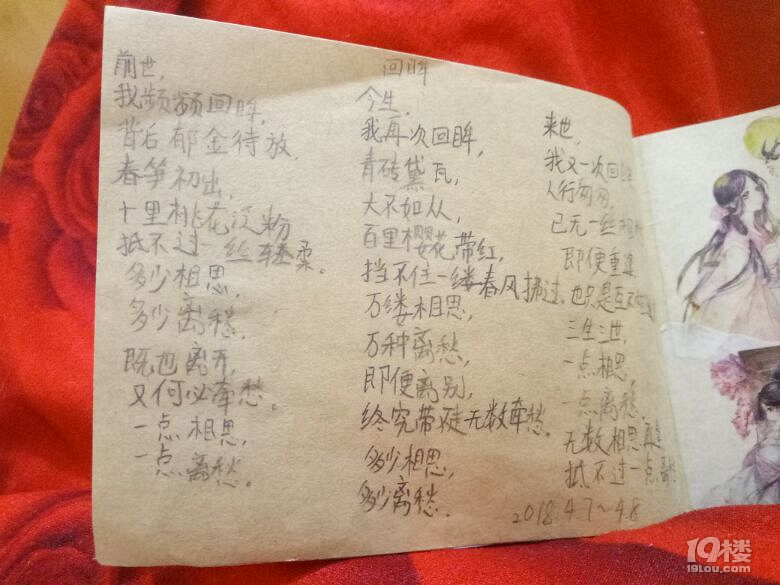 回眸
前世，
我频频回眸，
背后郁金待放，
春笋初出，
十里桃花泛粉
抵不过一丝轻柔。
多少相思，
多少离愁，
既已离开，
又何必牵愁。
一点相思，
一点离愁。
今生，
我再次回眸，
青砖黛瓦，
大不如从，
百里樱花带红，
挡不住一缕春风拂过，
万缕相思，
万种离愁，
即便离别，
终究带徒无数牵愁。
多少相思，
多少离愁。
来世，
我又一次回
人行匆匆，
已无一丝
即便重逢，
也只是互不
三生三世，
一点相思，
一点离愁，
无数相思
抵不过一点
2018.4.7~4.8
19楼
19lou.com